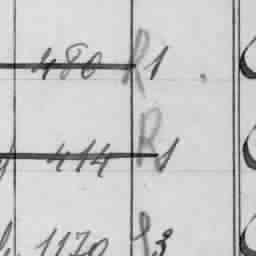 480 R1
414 R1
1170 3